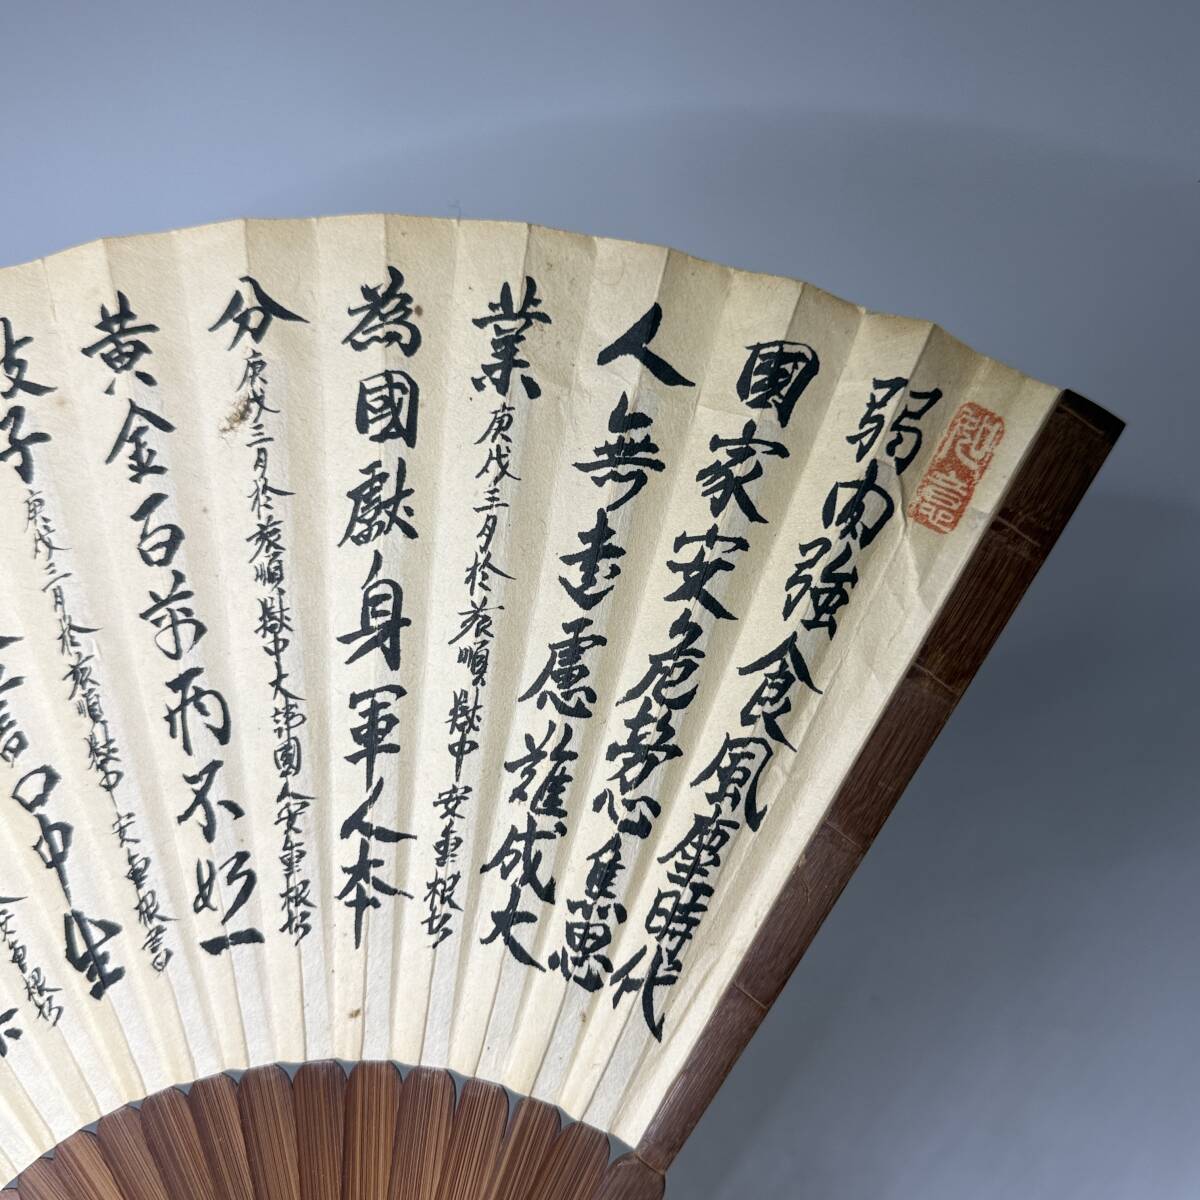 弱肉強食風塵時代
國家安危勞心焦思
人無遠慮難成大
業 庚戌三月於旅順獄中 安重根書
為國獻身軍人本
分 庚戌三月於旅順獄中 大韓國人安重根書
黃金百萬兩不如一
教子 庚戌三月於旅順獄中 安重根書
口中生
安重根書